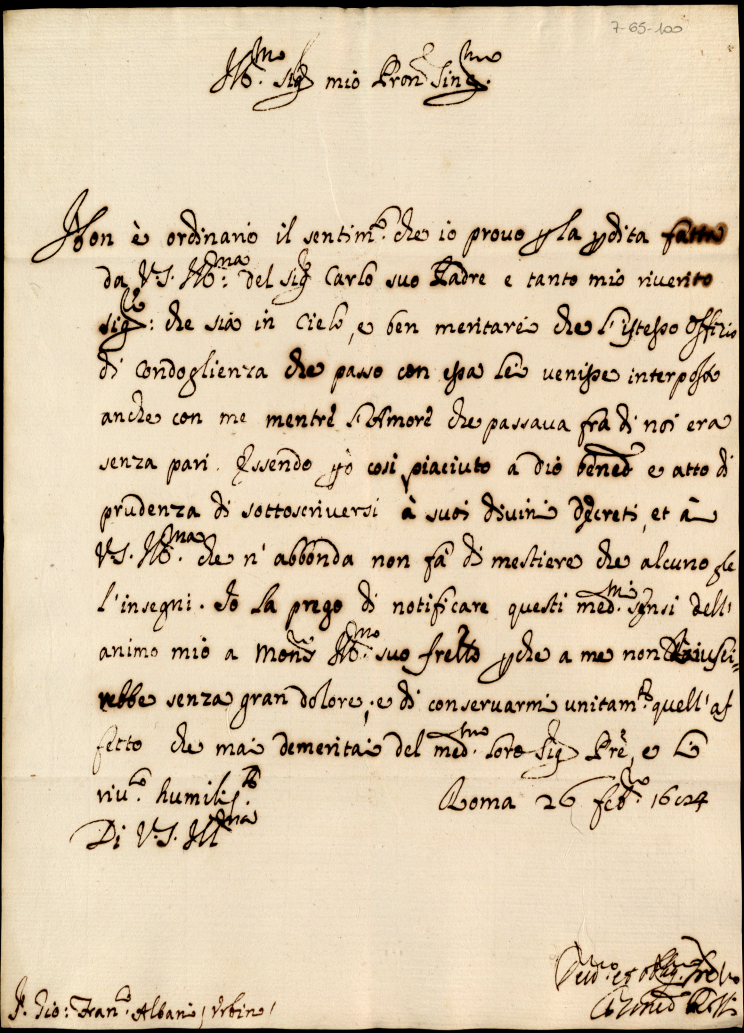 7-65-100
Ill.mo Sig.r mio Pron Sing.mo
Non è ordinario il sentim.to che io provo p la pdita fatta
da V.S. Ill.ma del Sig.r Carlo suo Padre e tanto mio riverito
Sig.re: che sia in Cielo, e ben meritarei che l'istesso Offizio
di Condoglienza che passo con essa lei venisse interposto
anche con me mentre l'Amore che passava fra di noi era
senza pari. Essendo pò cosi piaciuto a Dio bened.o e atto di
prudenza di sottoscriversi à suoi divini decreti, et à
V.S. Ill.ma che n'abbonda non fà di mestiere che alcuno gle
l'insegni. Io la prego di notificare questi med.mi sensi dell'
animo mio a Mons.r Ill.mo suo frello pche a me non riusci=
rebbe senza gran dolore, e di conservarmi unitam.te quell'af
fetto che mai demeritai del med.mo loro Sig.r Pre, e li
riv.co humiliss.te
Roma 26 feb.ro 1624
Di V.S. Ill.ma
S. Gio: Fran.co Albani / Urbino /